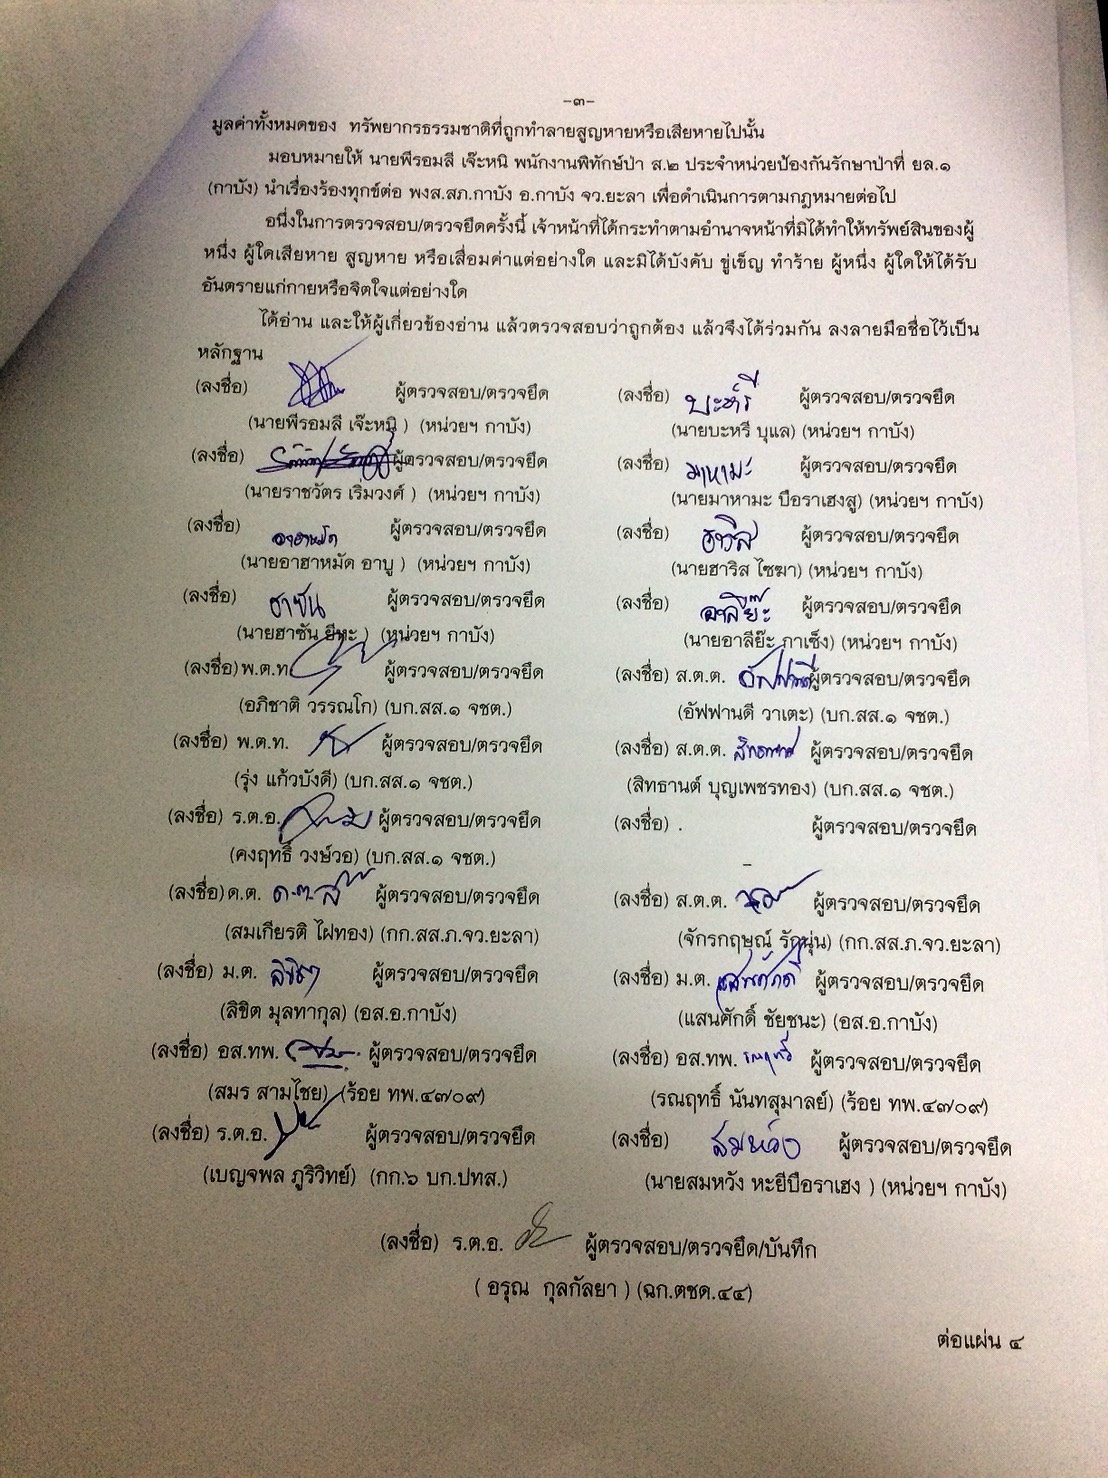 -๓-
มูลค่าทั้งหมดของ ทรัพยากรธรรมชาติที่ถูกทำลายสูญหายหรือเสียหายไปนั้น
มอบหมายให้ นายพีรอมลี เจ๊ะหนิ พนักงานพิทักษ์ป่า ส.๒ ประจำหน่วยป้องกันรักษาป่าที่ ยล.๑
(กาบัง) นำเรื่องร้องทุกข์ต่อ พงส.สภ.กาบัง อ.กาบัง จว.ยะลา เพื่อดำเนินการตามกฎหมายต่อไป
อนึ่งในการตรวจสอบ/ตรวจยึดครั้งนี้ เจ้าหน้าที่ได้กระทำตามอำนาจหน้าที่มิได้ทำให้ทรัพย์สินของผู้
หนึ่ง ผู้ใดเสียหาย สูญหาย หรือเสื่อมค่าแต่อย่างใด และมิได้บังคับ ขู่เข็ญ ทำร้าย ผู้หนึ่ง ผู้ใดให้ได้รับ
อันตรายแก่กายหรือจิตใจแต่อย่างใด
ได้อ่าน และให้ผู้เกี่ยวข้องอ่าน แล้วตรวจสอบว่าถูกต้อง แล้วจึงได้ร่วมกัน ลงลายมือชื่อไว้เป็น
หลักฐาน
(ลงชื่อ) ผู้ตรวจสอบ/ตรวจยึด (ลงชื่อ) บะหรี ผู้ตรวจสอบ/ตรวจยึด
(นายพีรอมลี เจ๊ะหนิ ) (หน่วยฯ กาบัง) (นายบะหรี บุแล) (หน่วยฯ กาบัง)
(ลงชื่อ) ผู้ตรวจสอบ/ตรวจยึด (ลงชื่อ) มาหามะ ผู้ตรวจสอบ/ตรวจยึด
(นายราชวัตร เริ่มวงศ์ ) (หน่วยฯ กาบัง) (นายมาหามะ บือราเฮงสู) (หน่วยฯ กาบัง)
(ลงชื่อ) อาฮาหมัด ผู้ตรวจสอบ/ตรวจยึด (ลงชื่อ) ฮาริส ผู้ตรวจสอบ/ตรวจยึด
(นายอาฮาหมัด อาบู ) (หน่วยฯ กาบัง) (นายฮาริส ไซฆา) (หน่วยฯ กาบัง)
(ลงชื่อ) ฮาซัน ผู้ตรวจสอบ/ตรวจยึด (ลงชื่อ) อาลีย๊ะ ผู้ตรวจสอบ/ตรวจยึด
(นายฮาซัน ยีหะ ) (หน่วยฯ กาบัง) (นายอาลีย๊ะ กาเซ็ง) (หน่วยฯ กาบัง)
(ลงชื่อ) พ.ต.ท ผู้ตรวจสอบ/ตรวจยึด (ลงชื่อ) ส.ต.ต. อัฟฟานดี ผู้ตรวจสอบ/ตรวจยึด
(อภิชาติ วรรณโก) (บก.สส.๑ จชต.) (อัฟฟานดี วาเตะ) (บก.สส.๑ จชต.)
(ลงชื่อ) พ.ต.ท. ผู้ตรวจสอบ/ตรวจยึด (ลงชื่อ) ส.ต.ต. สิทธานต์ ผู้ตรวจสอบ/ตรวจยึด
(รุ่ง แก้วบังดี) (บก.สส.๑ จชต.) (สิทธานต์ บุญเพชรทอง) (บก.สส.๑ จชต.)
(ลงชื่อ) ร.ต.อ. ผู้ตรวจสอบ/ตรวจยึด (ลงชื่อ) . ผู้ตรวจสอบ/ตรวจยึด
(คงฤทธิ์ วงษ์วอ) (บก.สส.๑ จชต.) –
(ลงชื่อ) ด.ต. ด.ต. ผู้ตรวจสอบ/ตรวจยึด (ลงชื่อ) ส.ต.ต. ผู้ตรวจสอบ/ตรวจยึด
(สมเกียรติ ไฝทอง) (กก.สส.ภ.จว.ยะลา) (จักรกฤษณ์ รักนุ่น) (กก.สส.ภ.จว.ยะลา)
(ลงชื่อ) ม.ต. ลิขิต ผู้ตรวจสอบ/ตรวจยึด (ลงชื่อ) ม.ต. แสนศักดิ์ ผู้ตรวจสอบ/ตรวจยึด
(ลิขิต มุลทากุล) (อส.อ.กาบัง) (แสนศักดิ์ ชัยชนะ) (อส.อ.กาบัง)
(ลงชื่อ) อส.ทพ. ผู้ตรวจสอบ/ตรวจยึด (ลงชื่อ) อส.ทพ. รณฤทธิ์ ผู้ตรวจสอบ/ตรวจยึด
(สมร สามไชย) (ร้อย ทพ.๔๗๐๙) (รณฤทธิ์ นันทสุมาลย์) (ร้อย ทพ.๔๗๐๙)
(ลงชื่อ) ร.ต.อ. ผู้ตรวจสอบ/ตรวจยึด (ลงชื่อ) สมหวัง ผู้ตรวจสอบ/ตรวจยึด
(เบญจพล ภูริวิทย์) (กก.๖ บก.ปทส.) (นายสมหวัง หะยีบือราเฮง ) (หน่วยฯ กาบัง)
(ลงชื่อ) ร.ต.อ. ผู้ตรวจสอบ/ตรวจยึด/บันทึก
( อรุณ กุลกัลยา ) (ฉก.ตชด.๔๔)
ต่อแผ่น ๔